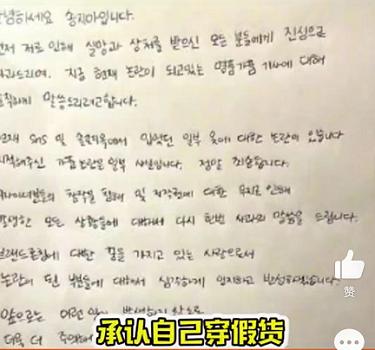 안녕하세요 송지아입니다.
먼저 저로 인해 실망과 상처를 받으신 모든 분들에게 진심으로
사과드리며, 지금 현재 논란이 되고있는 명품가품 기사에 대해
말씀드리려고합니다.
현재 SNS 및 솔로지옥에서 입었던 일부 옷에 대한 논란이 있습니다
지적해주신 가품 논란은 일부 사실입니다. 정말 죄송합니다.
디자이너분들의 창작물 침해 및 저작권에 대한 무지로 인해
발생한 모든 상황들에 대해서 다시 한번 사과의 말씀을 드립니다.
브랜드론칭에 대한 꿈을 가지고 있는 사람으로서
논란이 된 부분들에 대해서 심각하게 인지하고 반성하겠습니다.
앞으로는 이런
더욱 더
赞
承认自己穿假货